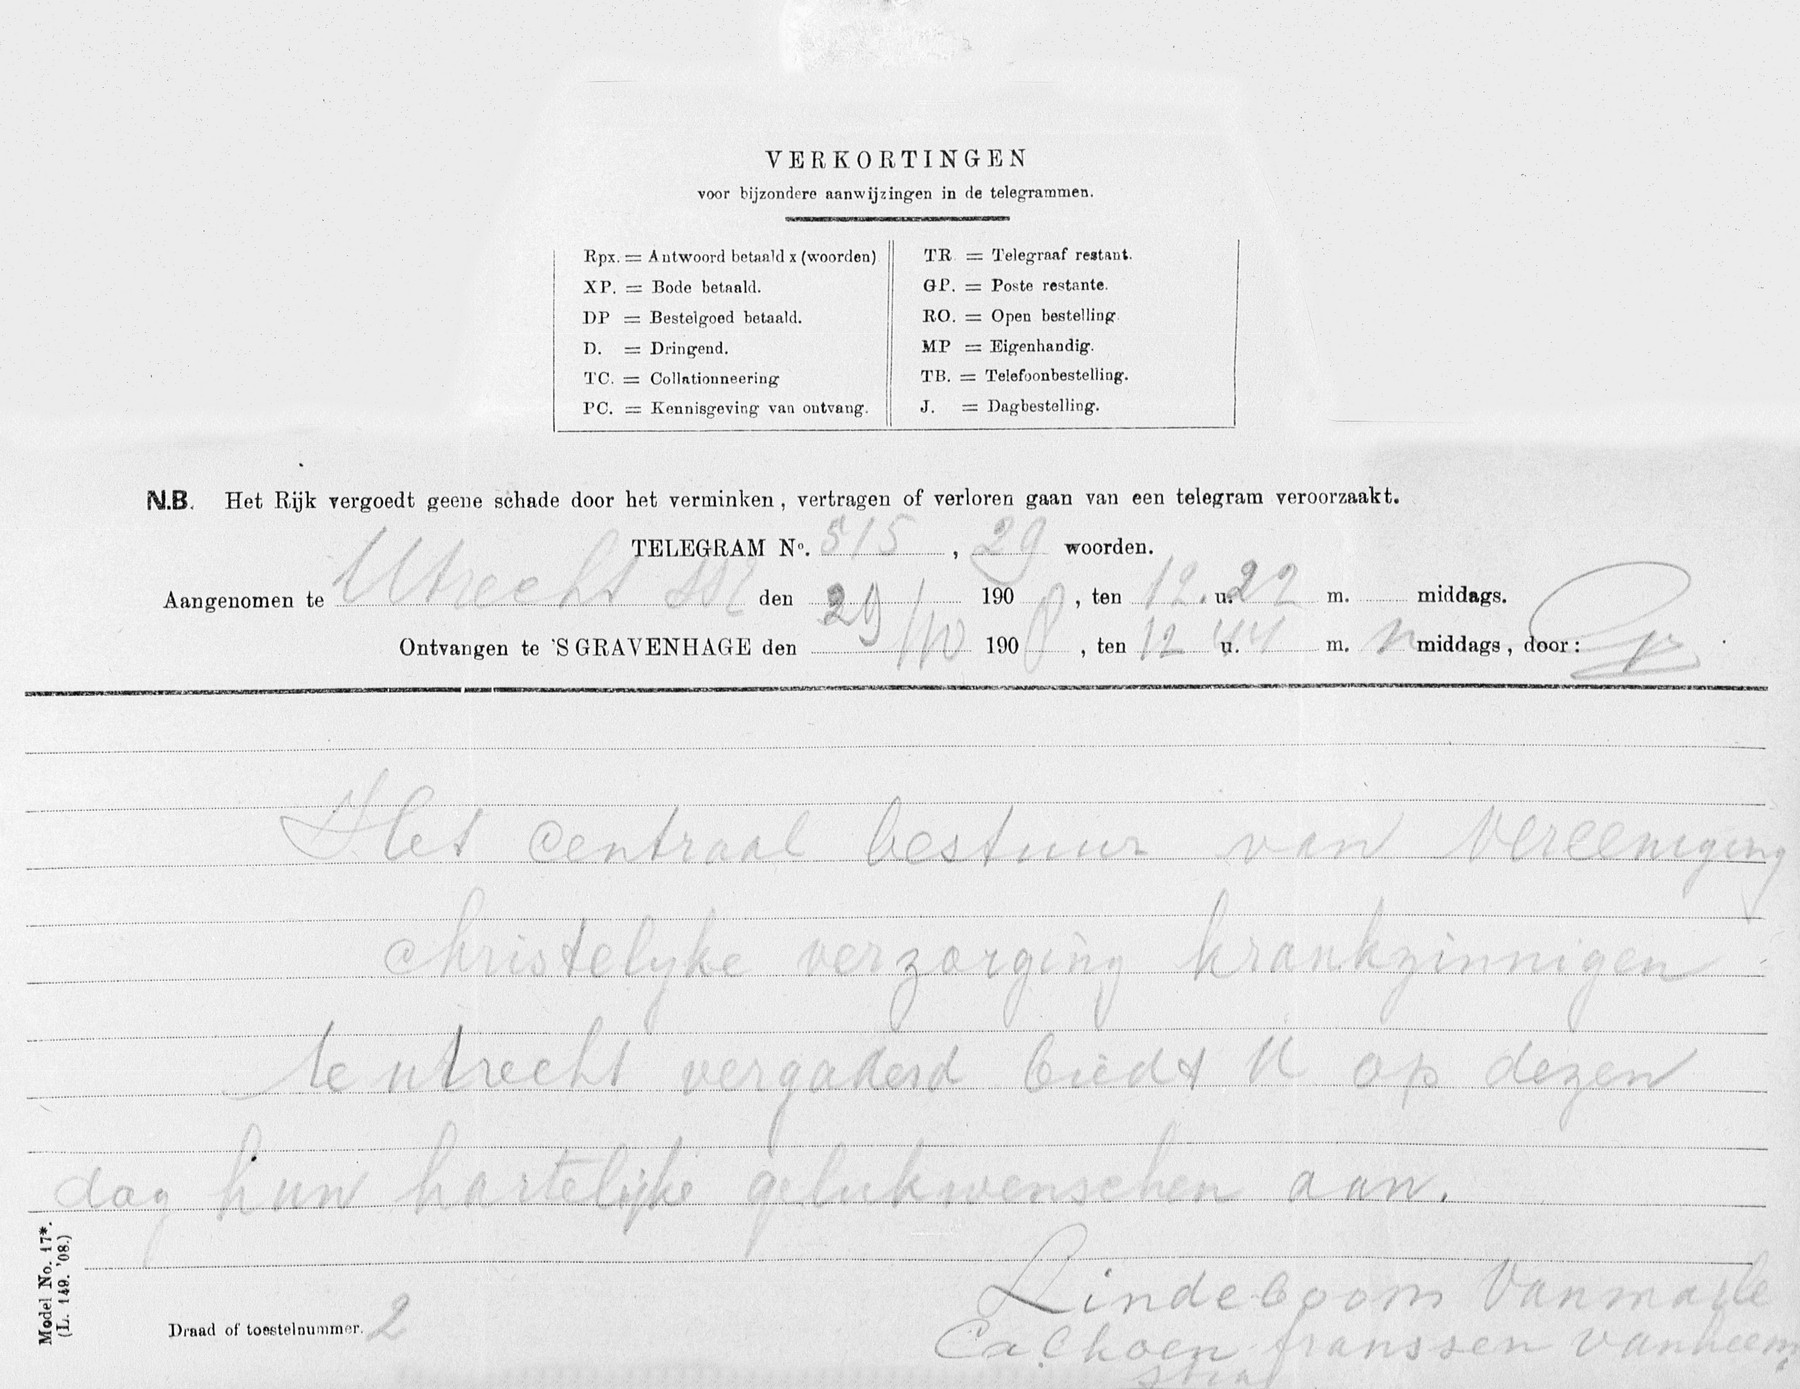 VERKORTINGEN
voor bijzondere aanwijzingen in de telegrammen.
Rpx. = Antwoord betaald x (woorden)
XP. = Bode betaald.
DP = Bestelgoed betaald.
D. = Dringend.
TC. = Collationneering
PC. = Kennisgeving van ontvang.
TR = Telegraaf restant.
GP. = Poste restante.
RO. = Open bestelling.
MP = Eigenhandig.
TB. = Telefoonbestelling.
J. = Dagbestelling.
N.B. Het Rijk vergoedt geene schade door het verminken, vertragen of verloren gaan van een telegram veroorzaakt.
TELEGRAM No. 515, 29 woorden.
Aangenomen te Utrecht den 29/10 1908, ten 12 u. 22 m. middags.
Ontvangen te 'S GRAVENHAGE den 1908, ten 12 u. 44 m. n middags, door:
Het centraal bestuur van vereeniging
christelyke verzorging krankzinnigen
te utrecht vergaderd biedt U op dezen
dag hun hartelijke gelukwenschen aan.
Lindeboom Vanmarle
Ca Choen franssen vanheem
stra
Draad of toestelnummer. 2
Model No. 17*.
(L. 149. '08.)